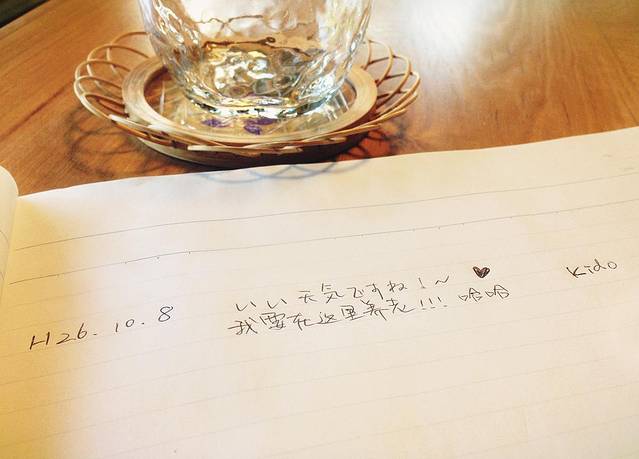 いい天気ですね！～ ♥ Kido
H26.10.8 我要在这里养老!!! 哈哈